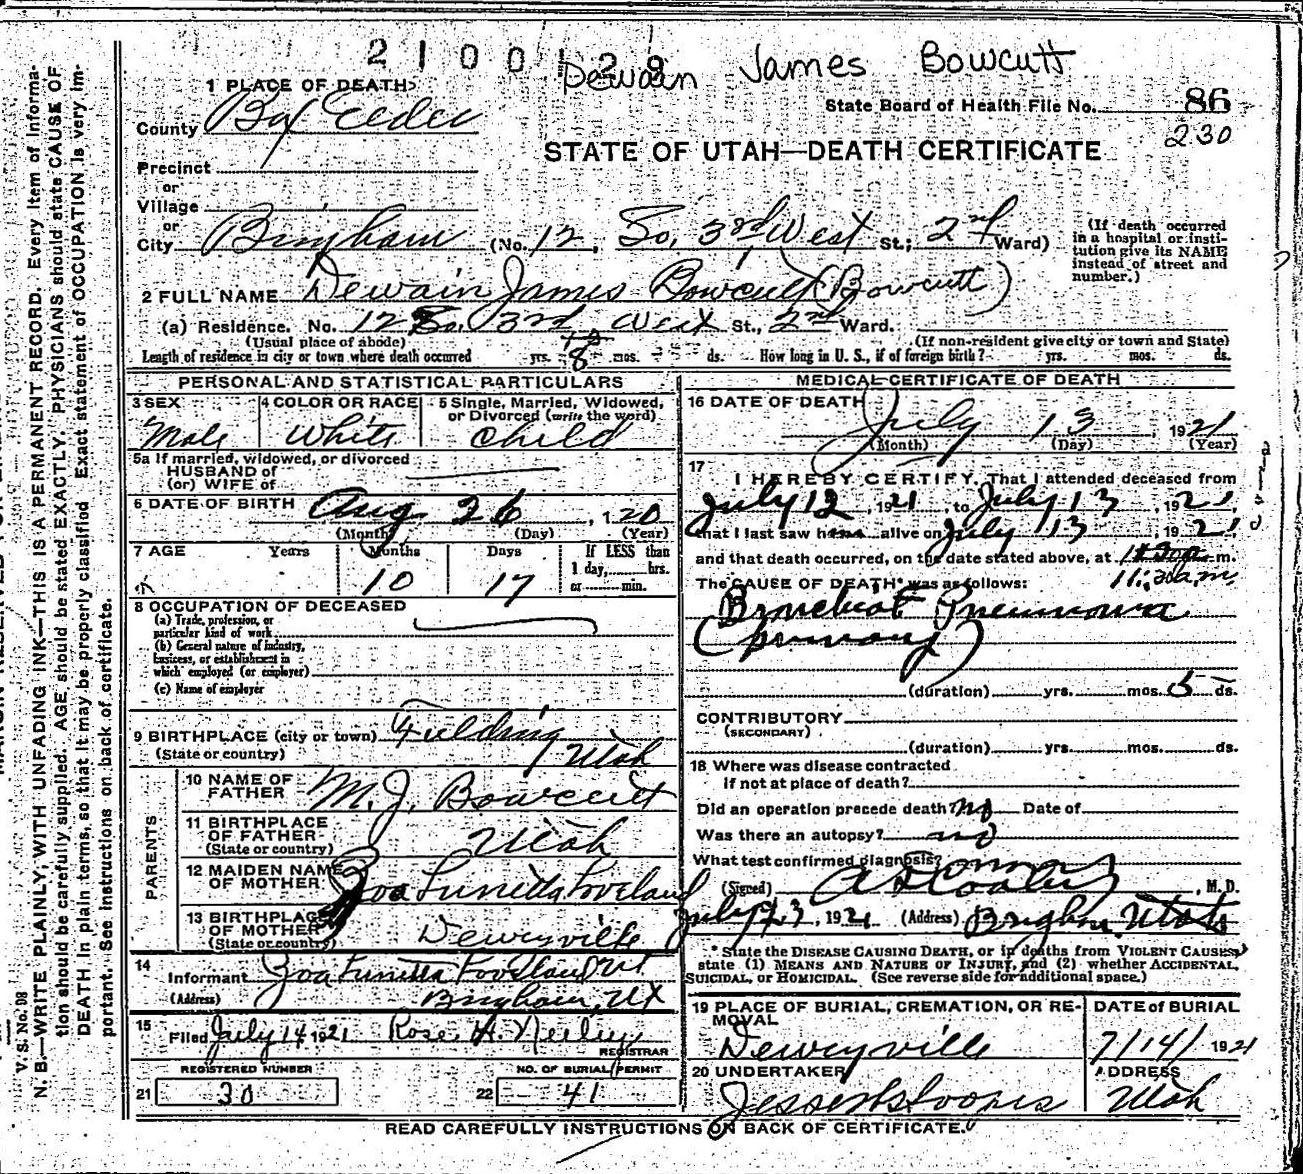 2100129
Dewain James Bowcutt
1 PLACE OF DEATH
State Board of Health File No. 86
County Box Elder
230
STATE OF UTAH—DEATH CERTIFICATE
Precinct
or
Village
or
City Brigham (No. 12, So. 3rd West St.; 2nd Ward)
(If death occurred in a hospital or insti-
tution give its NAME
instead of street and
number.)
2 FULL NAME Dewain James Bowcutt (Bowcutt)
(a) Residence. No. 12 So. 3rd West St., 2nd Ward.
(Usual place of abode) (If non-resident give city or town and State)
Length of residence in city or town where death occurred yrs. 8 mos. ds. How long in U. S., if of foreign birth? yrs. mos. ds.
PERSONAL AND STATISTICAL PARTICULARS
3 SEX Male
4 COLOR OR RACE White
5 Single, Married, Widowed,
or Divorced (write the word)
Child
5a If married, widowed, or divorced
HUSBAND of
(or) WIFE of
6 DATE OF BIRTH Aug. 26, 1920
(Month) (Day) (Year)
7 AGE Years Months Days If LESS than
1 day, hrs.
or min.
10 17
8 OCCUPATION OF DECEASED
(a) Trade, profession, or
particular kind of work
(b) General nature of industry,
business, or establishment in
which employed (or employer)
(c) Name of employer
9 BIRTHPLACE (city or town) Fielding
(State or country) Utah
PARENTS
10 NAME OF
FATHER M. J. Bowcutt
11 BIRTHPLACE
OF FATHER
(State or country) Utah
12 MAIDEN NAME
OF MOTHER Zoa Lunetta Loveland
13 BIRTHPLACE
OF MOTHER
(State or country) Deweyville
14
Informant Zoa Lunetta Loveland
(Address) Brigham, UT
15
Filed July 14 1921 Rose H.
REGISTRAR
REGISTERED NUMBER
21 30
NO. OF BURIAL PERMIT
22 41
MEDICAL CERTIFICATE OF DEATH
16 DATE OF DEATH July 13, 1921
(Month) (Day) (Year)
17
I HEREBY CERTIFY, That I attended deceased from
July 12, 1921, to July 13, 1921,
that I last saw him alive on July 13, 1921,
and that death occurred, on the date stated above, at m.
11:30 a.m.
The CAUSE OF DEATH* was as follows:
Bronchial Pneumonia
(primary)
(duration) yrs. mos. 5 ds.
CONTRIBUTORY
(SECONDARY)
(duration) yrs. mos. ds.
18 Where was disease contracted
if not at place of death?
Did an operation precede death? no Date of
Was there an autopsy? no
What test confirmed diagnosis?
(Signed) , M. D.
July 13, 1921 (Address) Brigham, Utah
*State the DISEASE CAUSING DEATH, or in deaths from VIOLENT CAUSES,
state (1) MEANS AND NATURE OF INJURY, and (2) whether ACCIDENTAL,
SUICIDAL, or HOMICIDAL. (See reverse side for additional space.)
19 PLACE OF BURIAL, CREMATION, OR RE-
MOVAL
Deweyville
DATE OF BURIAL
7/14/1921
20 UNDERTAKER
ADDRESS
Utah
READ CAREFULLY INSTRUCTIONS ON BACK OF CERTIFICATE.
V. S. No. 98
N. B.—WRITE PLAINLY, WITH UNFADING INK—THIS IS A PERMANENT RECORD. Every item of informa-
tion should be carefully supplied. AGE should be stated EXACTLY. PHYSICIANS should state CAUSE OF
DEATH in plain terms, so that it may be properly classified. Exact statement of OCCUPATION is very im-
portant. See instructions on back of certificate.